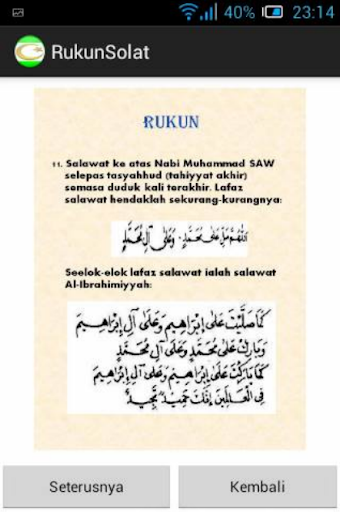 40% 23:14
RukunSolat
RUKUN
11. Salawat ke atas Nabi Muhammad SAW
selepas tasyahhud (tahiyyat akhir)
semasa duduk kali terakhir. Lafaz
salawat hendaklah sekurang-kurangnya:
اللّٰهُمَّ صَلِّ عَلَى مُحَمَّدٍ، وَعَلَى آلِ مُحَمَّدٍ
Seelok-elok lafaz salawat ialah salawat
Al-Ibrahimiyyah:
كَمَا صَلَّيْتَ عَلَى إِبْرَاهِيمَ وَعَلَى آلِ إِبْرَاهِيمَ
وَبَارِكْ عَلَى مُحَمَّدٍ وَعَلَى آلِ مُحَمَّدٍ
كَمَا بَارَكْتَ عَلَى إِبْرَاهِيمَ وَعَلَى آلِ إِبْرَاهِيمَ
فِي الْعَالَمِينَ إِنَّكَ حَمِيدٌ مَجِيدٌ
Seterusnya
Kembali